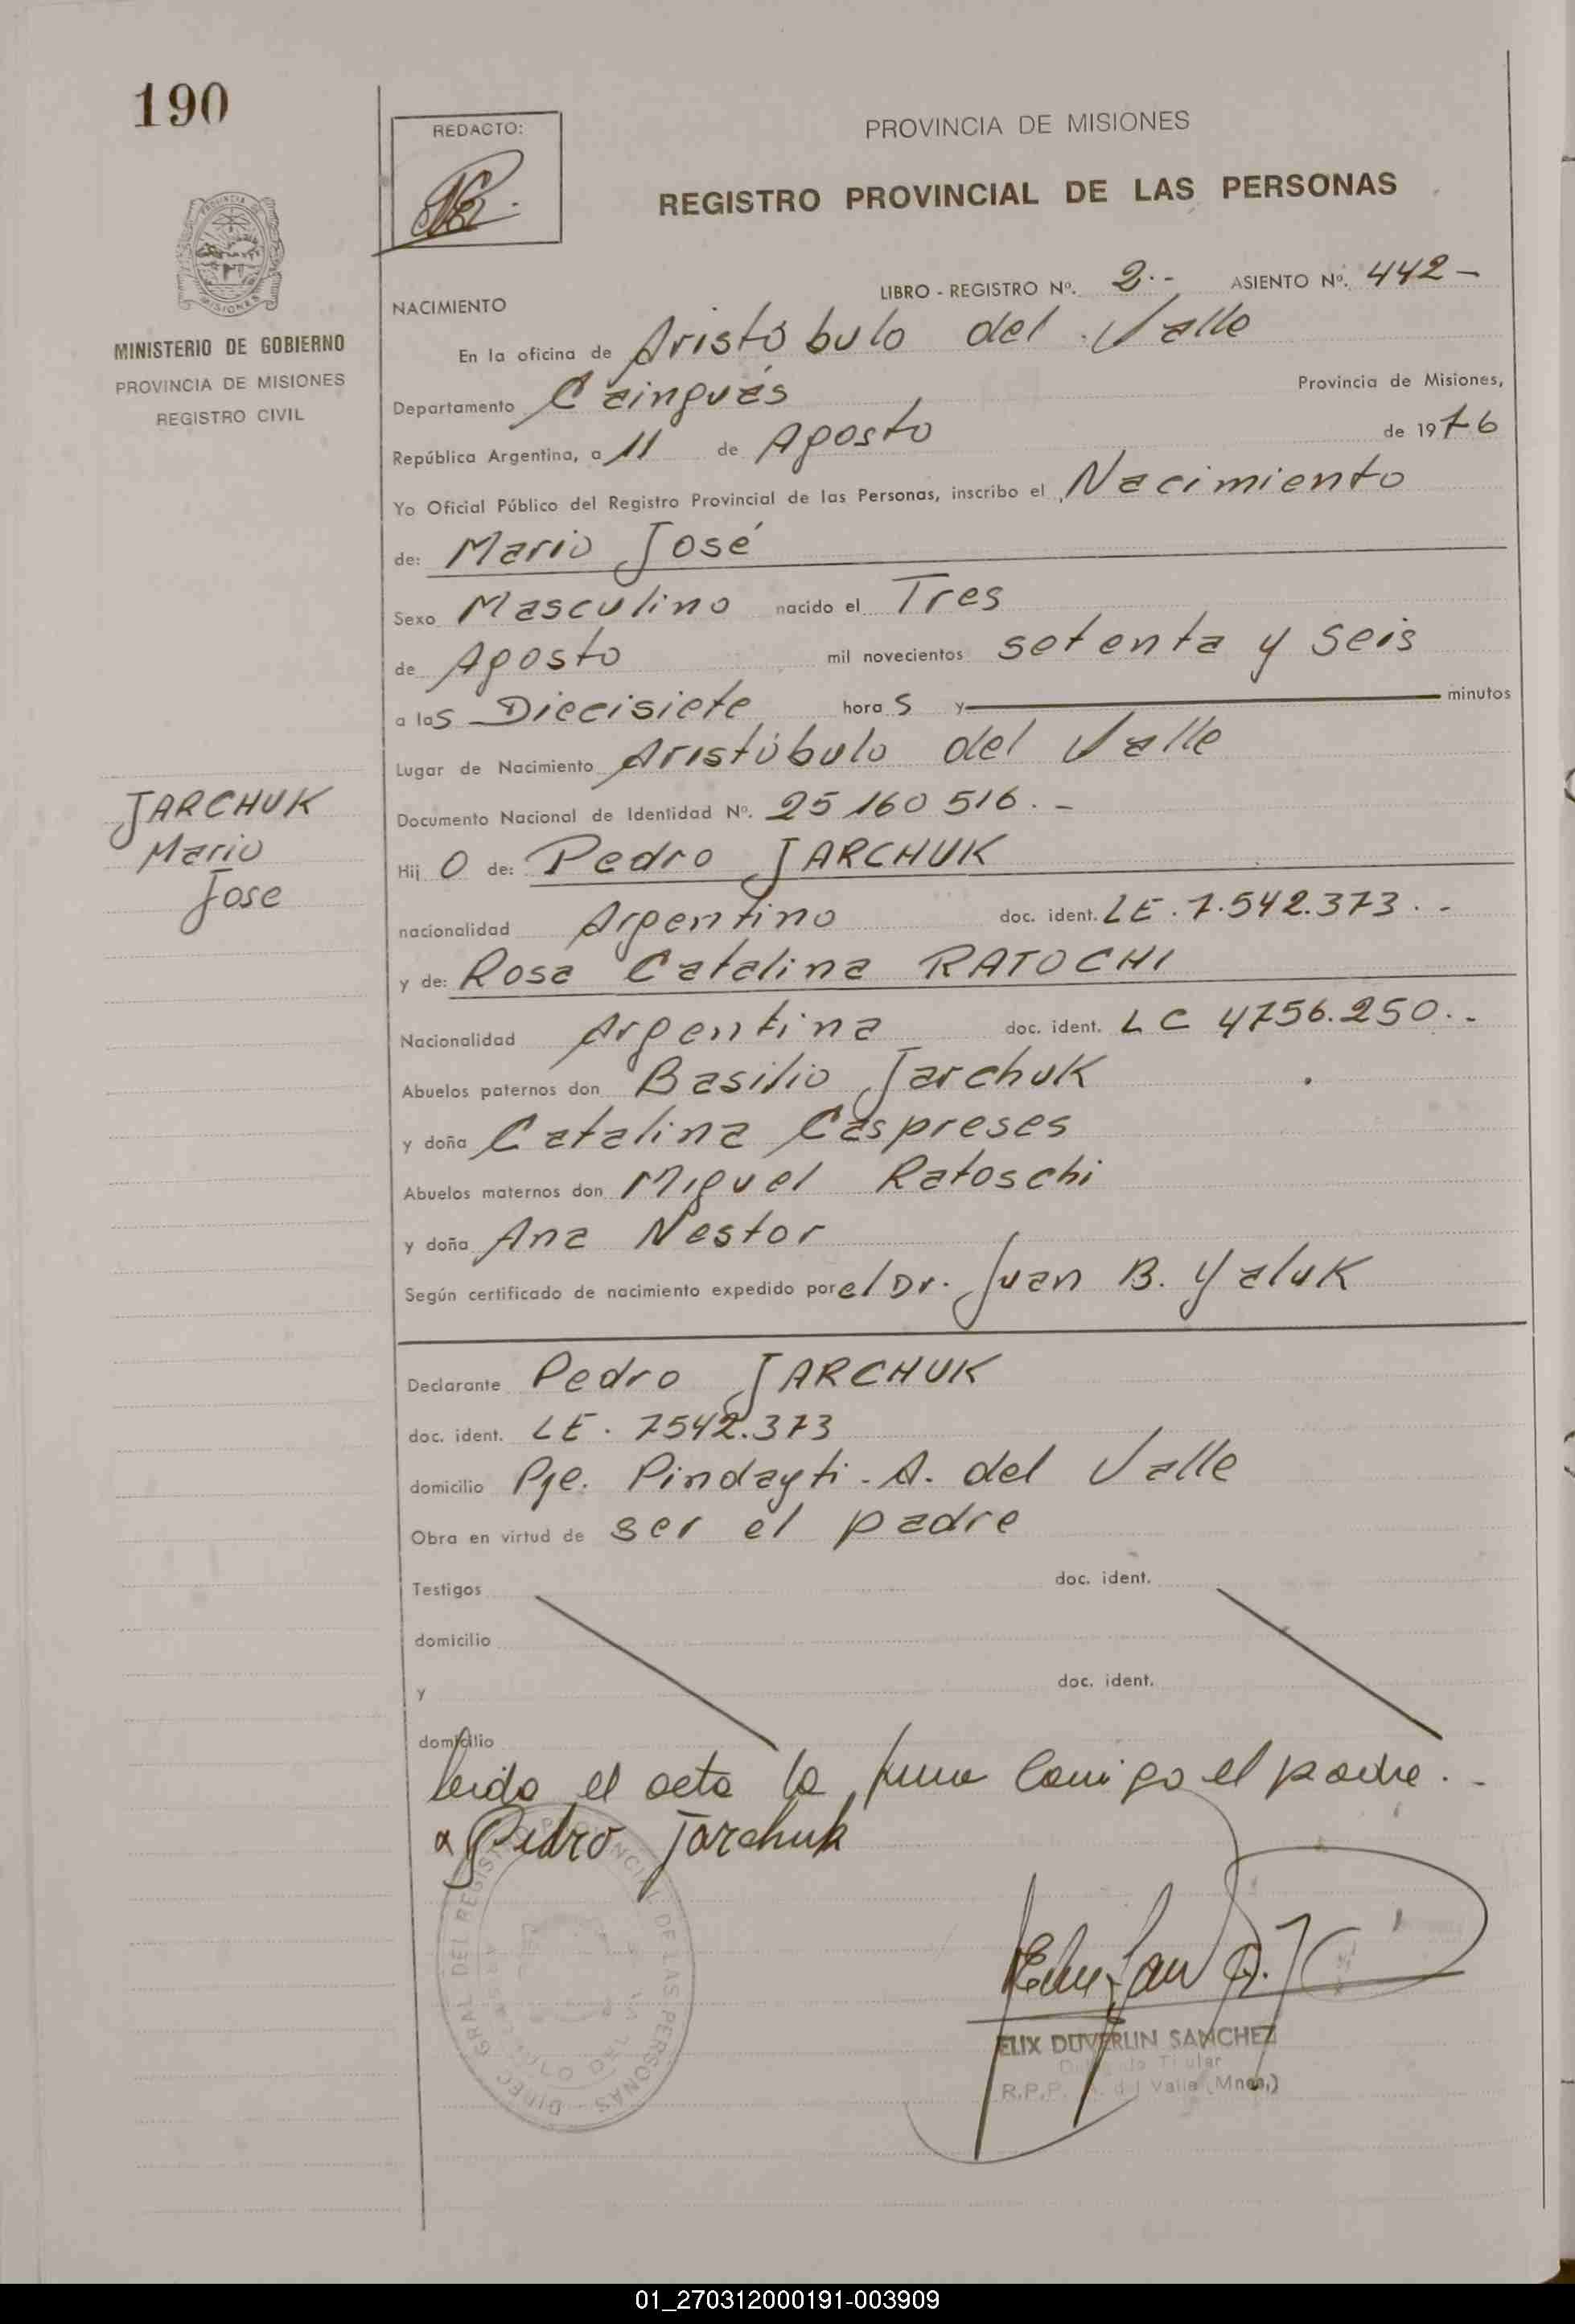 190
REDACTO:
PROVINCIA DE MISIONES
REGISTRO PROVINCIAL DE LAS PERSONAS
PROVINCIA DE
MISIONES
MINISTERIO DE GOBIERNO
PROVINCIA DE MISIONES
REGISTRO CIVIL
LIBRO - REGISTRO Nº. 2.- ASIENTO Nº. 442 -
NACIMIENTO
En la oficina de Aristóbulo del Valle
Departamento Cainguás Provincia de Misiones,
República Argentina, a 11 de Agosto de 1976
Yo Oficial Público del Registro Provincial de las Personas, inscribo el Nacimiento
de: Mario José
Sexo Masculino nacido el Tres
de Agosto mil novecientos setenta y seis
a las Diecisiete horas y minutos
Lugar de Nacimiento Aristóbulo del Valle
Documento Nacional de Identidad Nº. 25 160 516. -
JARCHUK
Mario
Jose
Hijo de: Pedro JARCHUK
nacionalidad Argentino doc. ident. LE. 7.542.373. -
y de: Rosa Catalina RATOCHI
Nacionalidad Argentina doc. ident. LC 4756.250. -
Abuelos paternos don Basilio Jarchuk
y doña Catalina Caspreses
Abuelos maternos don Miguel Ratoschi
y doña Ana Nestor
Según certificado de nacimiento expedido por el Dr. Juan B. Yaluk
Declarante Pedro JARCHUK
doc. ident. LE. 7542.373
domicilio Pje. Pindayti - A. del Valle
Obra en virtud de ser el padre
Testigos doc. ident.
domicilio
y doc. ident.
domicilio
leida el acta la firma conmigo el padre. -
Pedro Jarchuk
DIREC. GRAL DEL REGISTRO PROVINCIAL DE LAS PERSONAS
ELIX DUVERLIN SANCHEZ
Titular
R.P.P. A. del Valle (Mnes.)
01_270312000191-003909